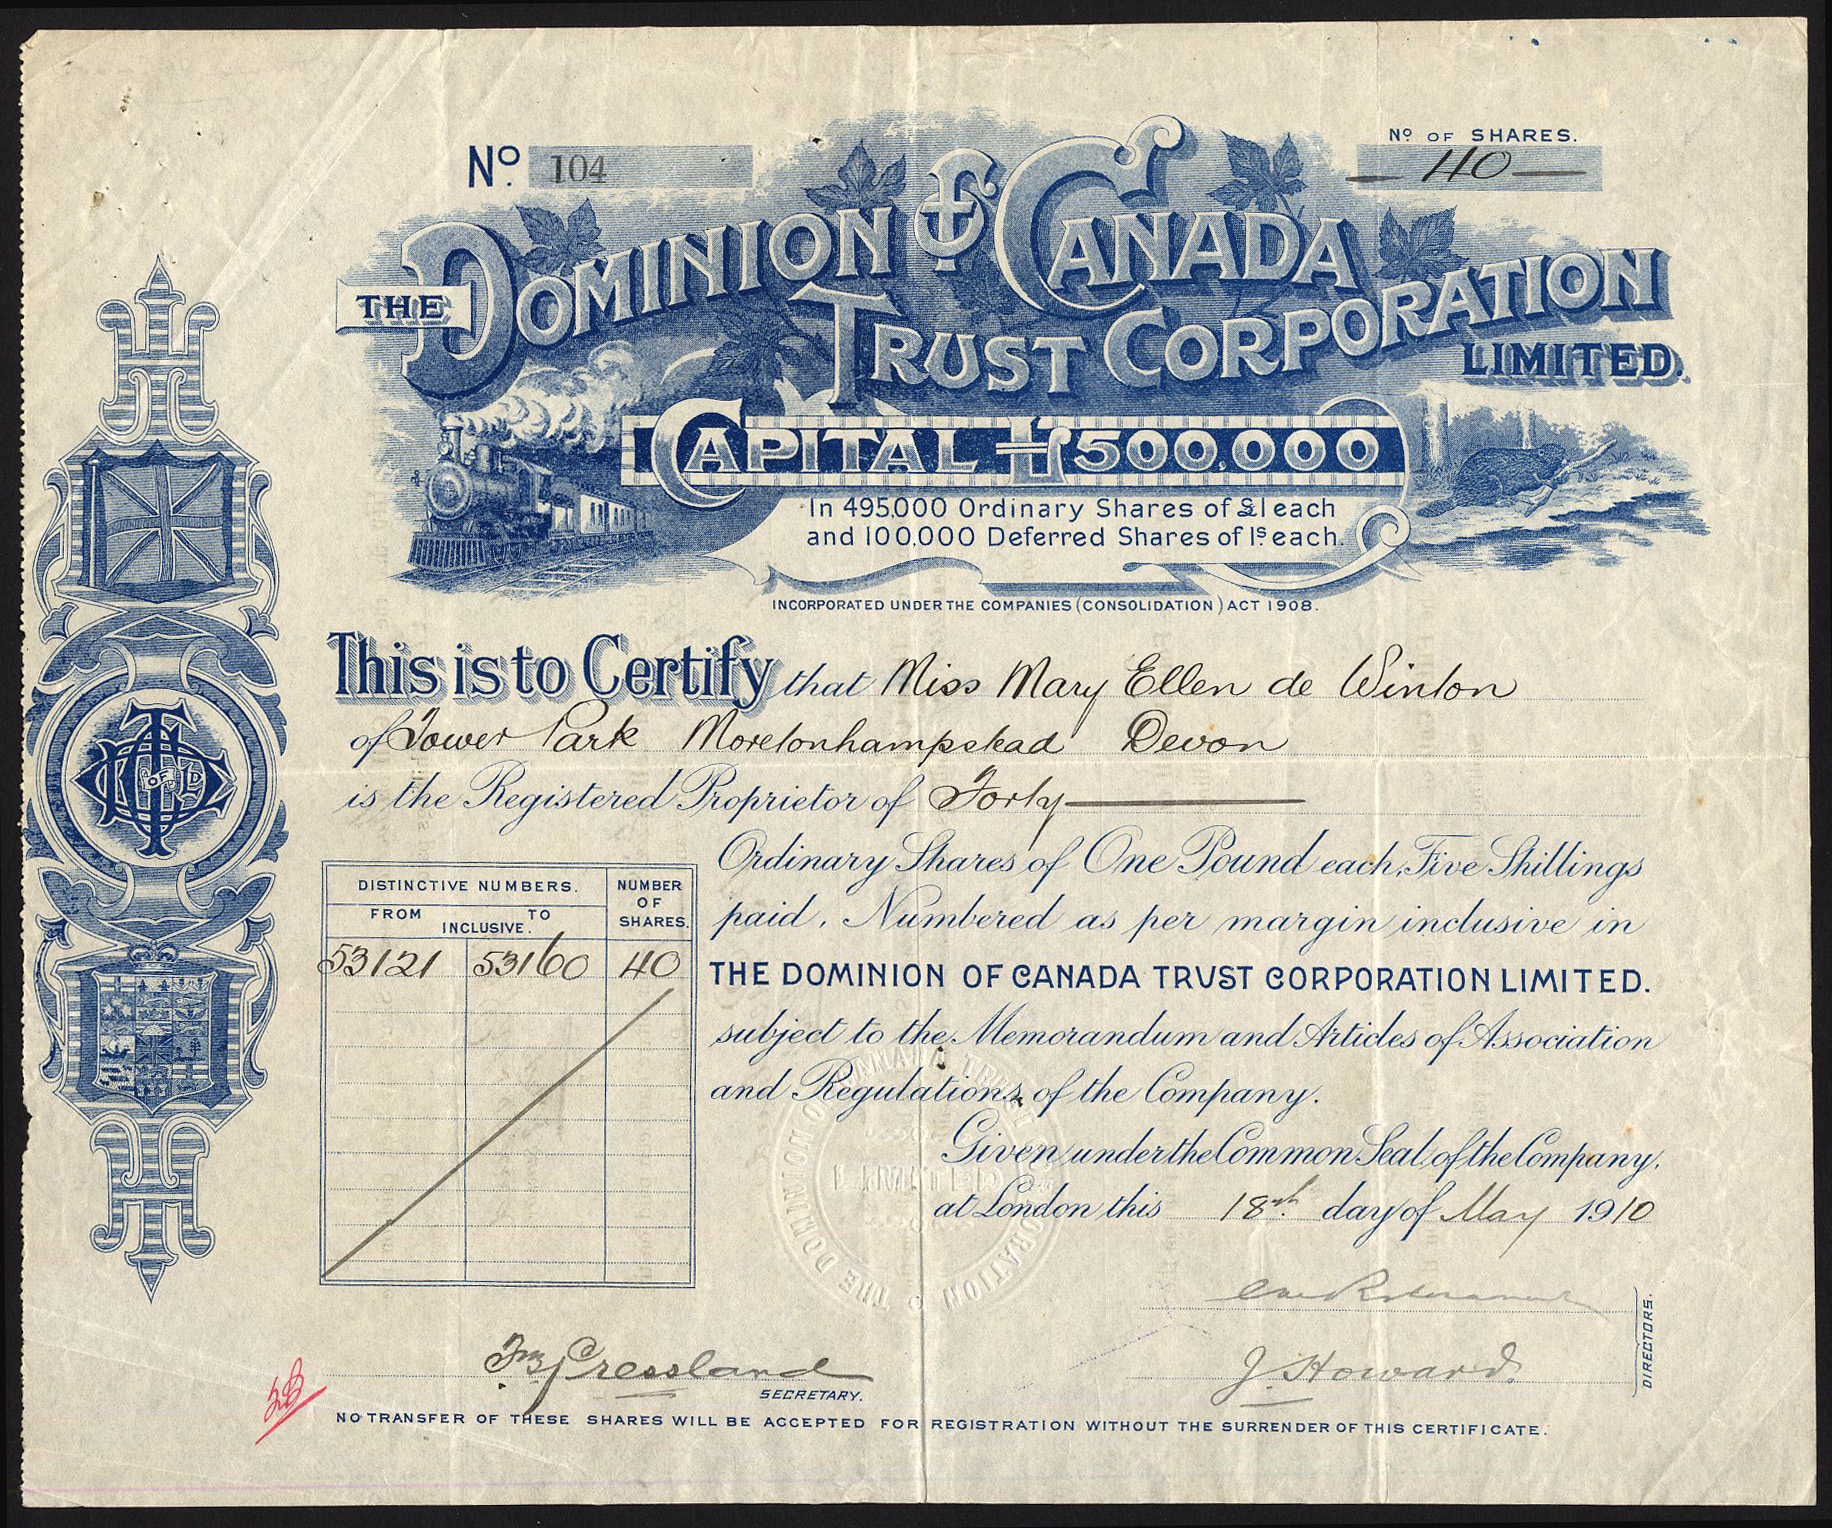 No. 104
No. OF SHARES.
40
THE DOMINION OF CANADA
TRUST CORPORATION
LIMITED.
CAPITAL £500,000
In 495,000 Ordinary Shares of £1 each
and 100,000 Deferred Shares of 1s. each.
INCORPORATED UNDER THE COMPANIES (CONSOLIDATION) ACT 1908.
This is to Certify that Miss Mary Ellen de Winton
of Tower Park Moretonhampstead Devon
is the Registered Proprietor of Forty
Ordinary Shares of One Pound each, Five Shillings
paid, Numbered as per margin inclusive in
THE DOMINION OF CANADA TRUST CORPORATION LIMITED.
subject to the Memorandum and Articles of Association
and Regulations of the Company.
DISTINCTIVE NUMBERS. NUMBER OF SHARES.
FROM TO
INCLUSIVE.
53121 53160 40
Given under the Common Seal of the Company,
at London this 18th day of May 1910
THE DOMINION OF CANADA TRUST CORPORATION
LIMITED
J. Howard.
DIRECTORS.
Pressland
SECRETARY.
NO TRANSFER OF THESE SHARES WILL BE ACCEPTED FOR REGISTRATION WITHOUT THE SURRENDER OF THIS CERTIFICATE.